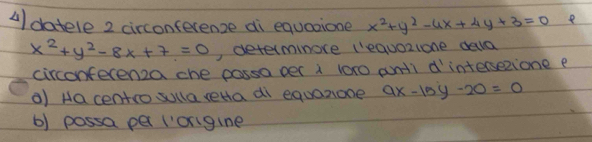 4) datele 2 circonferenze di equazione x²+y²-4x+4y+3=0 e
x²+y²-8x+7=0, determinare l'equazione della
circonferenza che passa per i loro punti d'intersezione e
a) Ha centro sulla retta di equazione 9x-15y-20=0
b) passa per l'origine